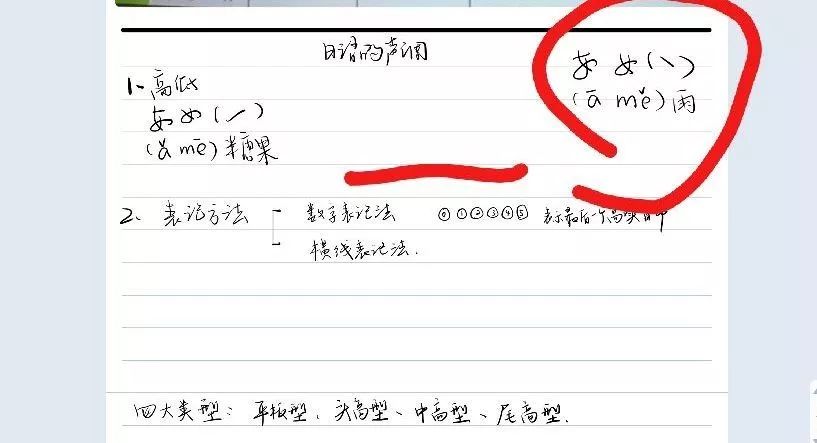 日语的声调
あめ(丶)
(ā mě)雨
1、高低
あめ(㇀)
(ǎ mē)糖果
2、表记方法 - 数字表记法 ⓪①②③④⑤ 表示最后一个高
- 横线表记法.
四大类型: 平板型、头高型、中高型、尾高型.